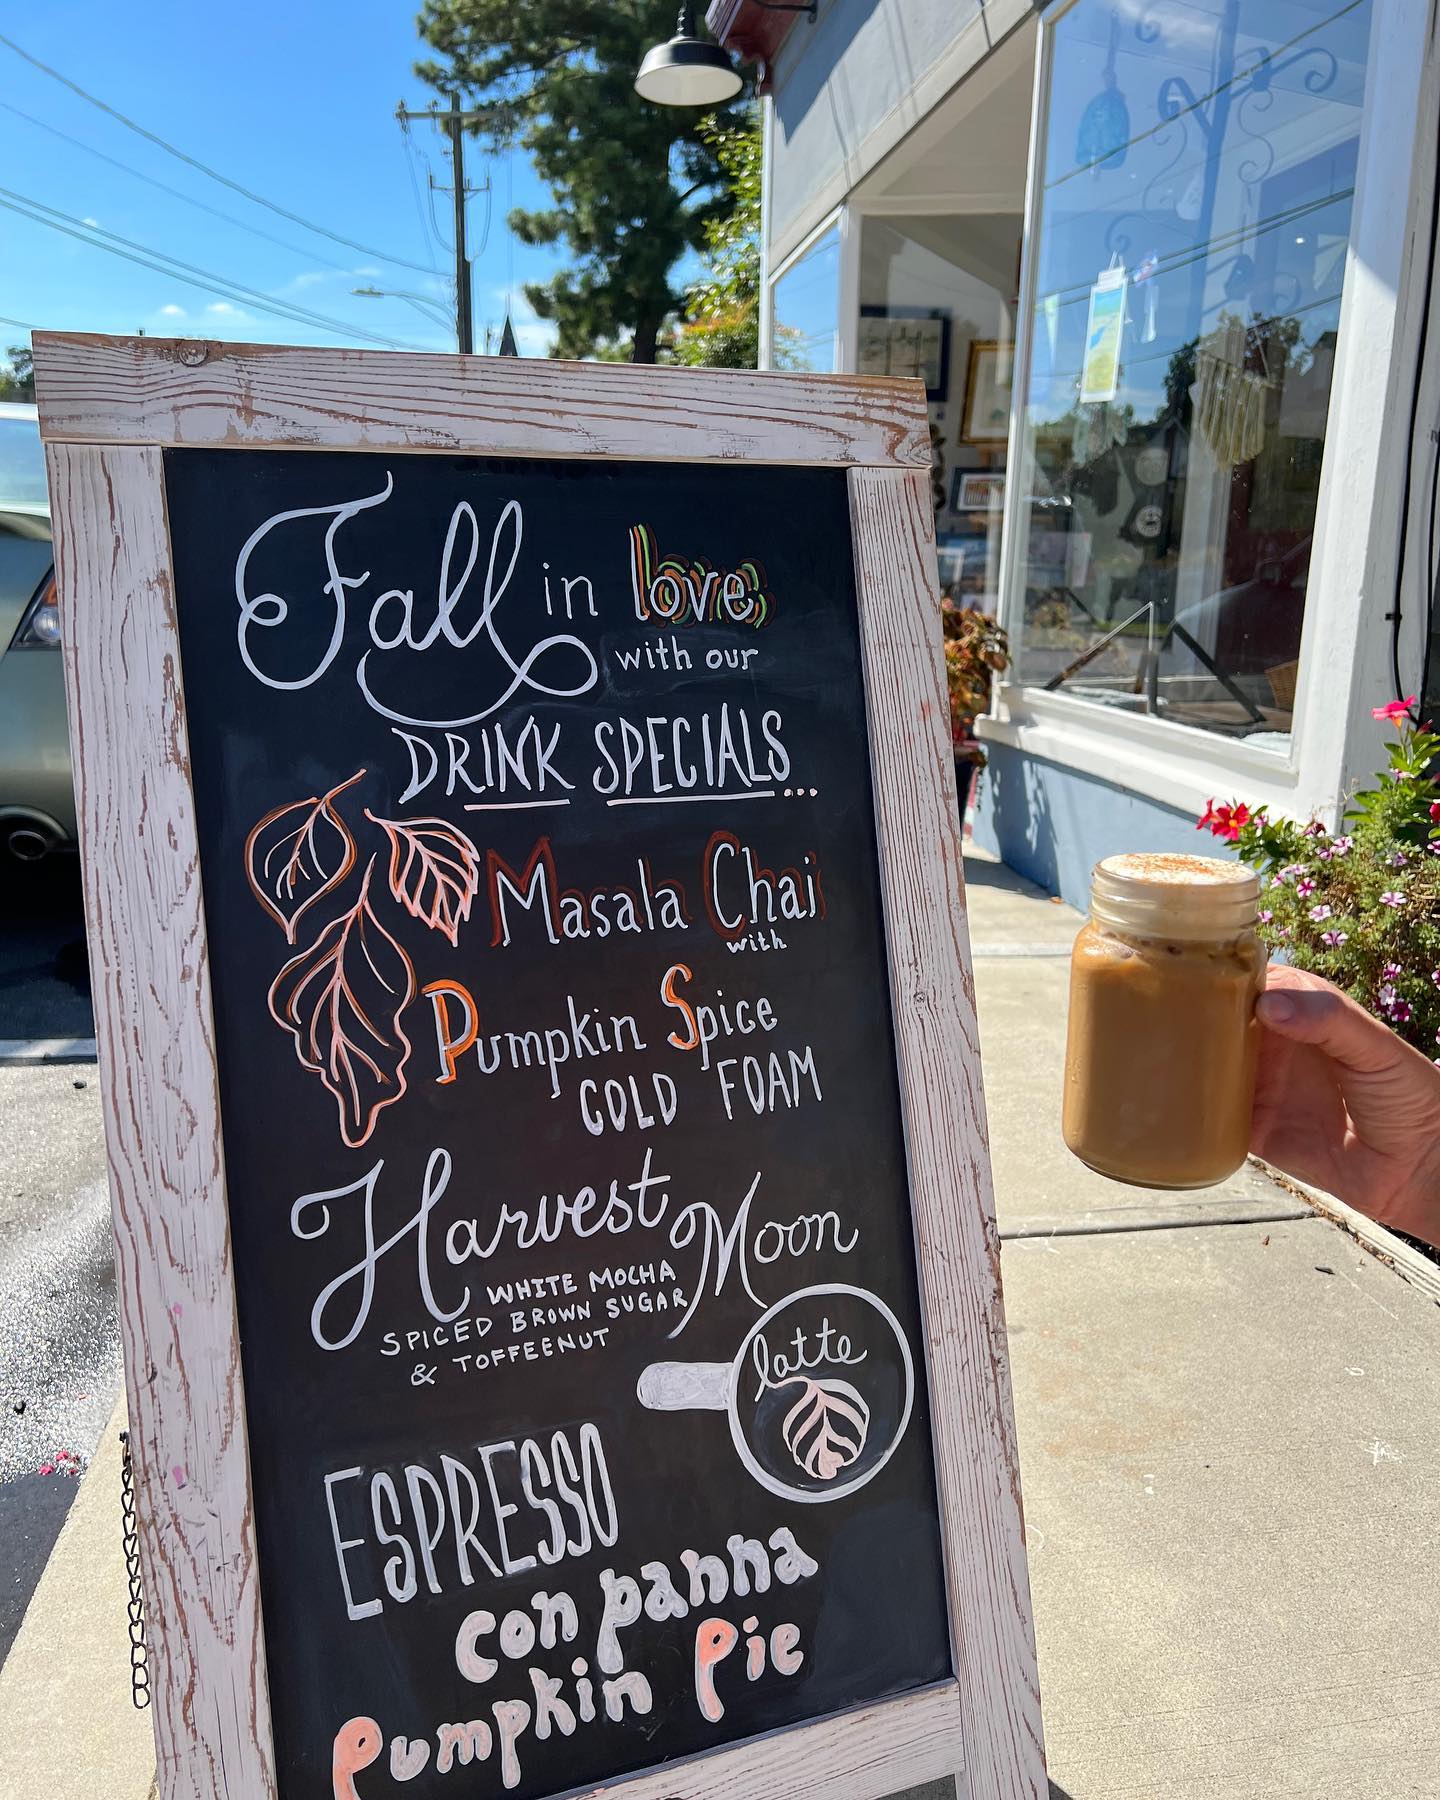 Fall in love
with our
DRINK SPECIALS...
Masala Chai
with
Pumpkin Spice
COLD FOAM
Harvest Moon
WHITE MOCHA
SPICED BROWN SUGAR
& TOFFEENUT
latte
ESPRESSO
con panna
Pumpkin Pie